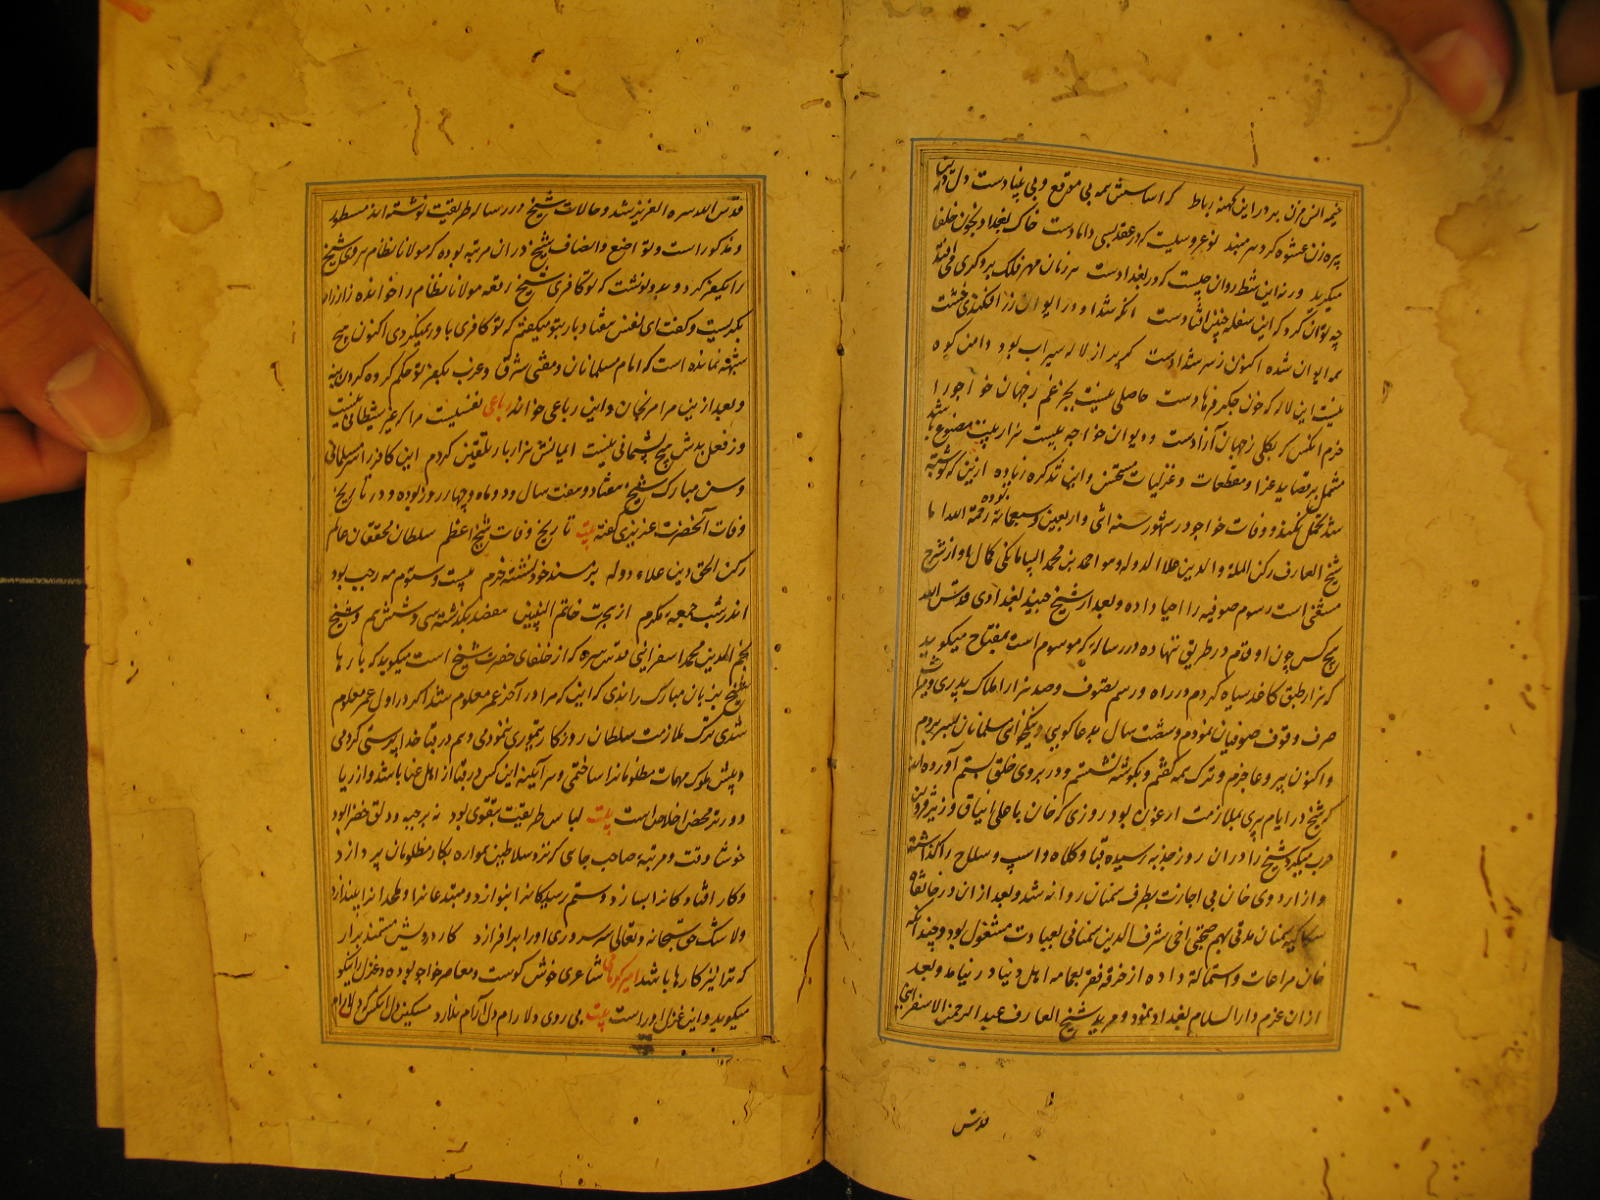 خیمه انس مزن بر در این کهنه رباط که اساسش همه بی موقع و بی بنیادست دل درین
پیره زن عشوه گر دهر مبند نو عروسیست که در عقد بسی دامادست خاک بغداد بخون خلفا
میگرید ورنه این شط روان چیست که در بغدادست هر زمان مهر فلک بر دگری می افتد
چه توان کرد که این سفله چنین افتادست آنکه شداد در ایوان ز زر افکندی خشت
همه ایوان شده اکنون ز سر شدادست گر پر از لاله سیراب بود دامن کوه
نیست این لاله که خون جگر فرهادست حاصلی نیست بجز غم ز جهان خواجو را
خرم آنکس که بکلی ز جهان آزادست و دیوان خواجه بیست هزار بیت مصنوع باشد
مشتمل بر قصاید غرا و مقطعات و غزلیات مستحسن و این تذکره زیاده ازین که نوشته
شد تحمل نکند و وفات خواجو در شهور سنه اثنی و اربعین و سبعمائة بوده رحمة الله اما
شیخ العارف رکن الملة والدین علاء الدوله و هو احمد بن محمد البیابانکی کمال او از شرح
مستغنی است رسوم صوفیه را احیا داده و بعد از شیخ جنید بغدادی قدس الله
هیچ کس چون او قدم در طریق ننهاده در رساله که موسوم است بمفتاح میگوید
که هزار طبق کاغذ سیاه کردم در راه و رسم تصوف و صد هزار املاک پدری و میراث
صرف و وقف صوفیان نمودم و شصت سال بدعاگویی و نیکخواهی مسلمانان بسر بردم
و اکنون پیر و عاجزم و ترک همه گفتم و بگوشه نشستم و در بروی خلق بستم آورده اند
که شیخ در ایام پیری بملازمت ارغون بود روزی که خان با علی ایناق در نزدیک قزوین
حرب میکرد شیخ را در آن روز جذبه رسیده قبا و کلاه و اسپ و سلاح را گذاشته
و از اردوی خان بی اجازت بطرف سمنان روانه شد و بعد از آن در خانقاه
سکاکیه سمنان مدتی بهم صحبتی اخی شرف الدین سمنانی بعبادت مشغول بود و چندانکه
خان مراعات و استمالة داده از خرقه فقر بجامه اهل دنیا در نیامد و بعد
از آن عزم دار السلام بغداد نمود و مرید شیخ العارف عبد الرحمن الاسفراینی
قدس
قدس الله سره العزیز شد و حالات شیخ در رساله طریقت نوشته اند مسطور
و مذکور است و تواضع و انصاف شیخ در آن مرتبه بوده که مولانا نظام هروی شیخ
را تکفیر کرد و بدو نوشت که تو کافری شیخ رقعه مولانا نظام را خوانده زار زار
بگریست و گفت ای نفس هفتاد بار بتو میگفتم که تو کافری باور نمیکردی اکنون هیچ
شبهه نمانده است که امام مسلمانان و مفتی شرق و غرب بکفر تو حکم کرده گردن بنه
و بعد ازین مرا مرنجان و این رباعی خواند رباعی نفسیست مرا که غیر شیطانی نیست
وز فعل بدش هیچ پشیمانی نیست ایمانش هزار بار تلقین کردم این کافر را سر مسلمانی
و سن مبارک شیخ هفتاد و هفت سال و دو ماه و چهار روز بوده و در تاریخ
وفات آنحضرت عزیزی گفته بیت تاریخ وفات شیخ اعظم سلطان محققان عالم
رکن الحق دین علاء دوله بر مسند خود نشسته خرم بیست و سوم مه رجب بود
اندر شب جمعه مکرم از هجرت خاتم النبیین هفصد بگذشته سی و شش هم و شیخ
نجم الدین محمد اسفراینی قدس سره که از خلفای حضرت شیخ است میگوید که بارها
شیخ بزبان مبارک راندی که اینکه مرا در آخر عمر معلوم شد اگر در اول عمر معلوم
شدی ترک ملازمت سلطان روزگار تیموری ننمودمی و هم در قبا خدا پرستی کردمی
و پیش ملوک مهمات مظلومانرا ساختمی و هر آینه این کس در قبا از اهل عبا باشد و از ریا
دورتر محض اخلاص است بیت لباس طریقت بتقوی بود نه بر جبه و دلق خضرا بود
خوشا وقت و مرتبه صاحب جای که نزد سلاطین همواره بکار مظلومان پردازد
و کار افتادگانرا بسازد و ستم رسیدگانرا بنوازد و مبتدعانرا و ملحدانرا بیندازد
و لا شک حق سبحانه و تعالی سروری او را برافرازد کار درویش مستمند برآر
که ترا نیز کارها باشد امیر کرمانی شاعری خوش گوست و معاصر خواجو بوده و غزل را نیکو
میگوید و این غزل او راست بیت بی روی دلارام دل آرام ندارد مسکین دل آنکس که دلارام